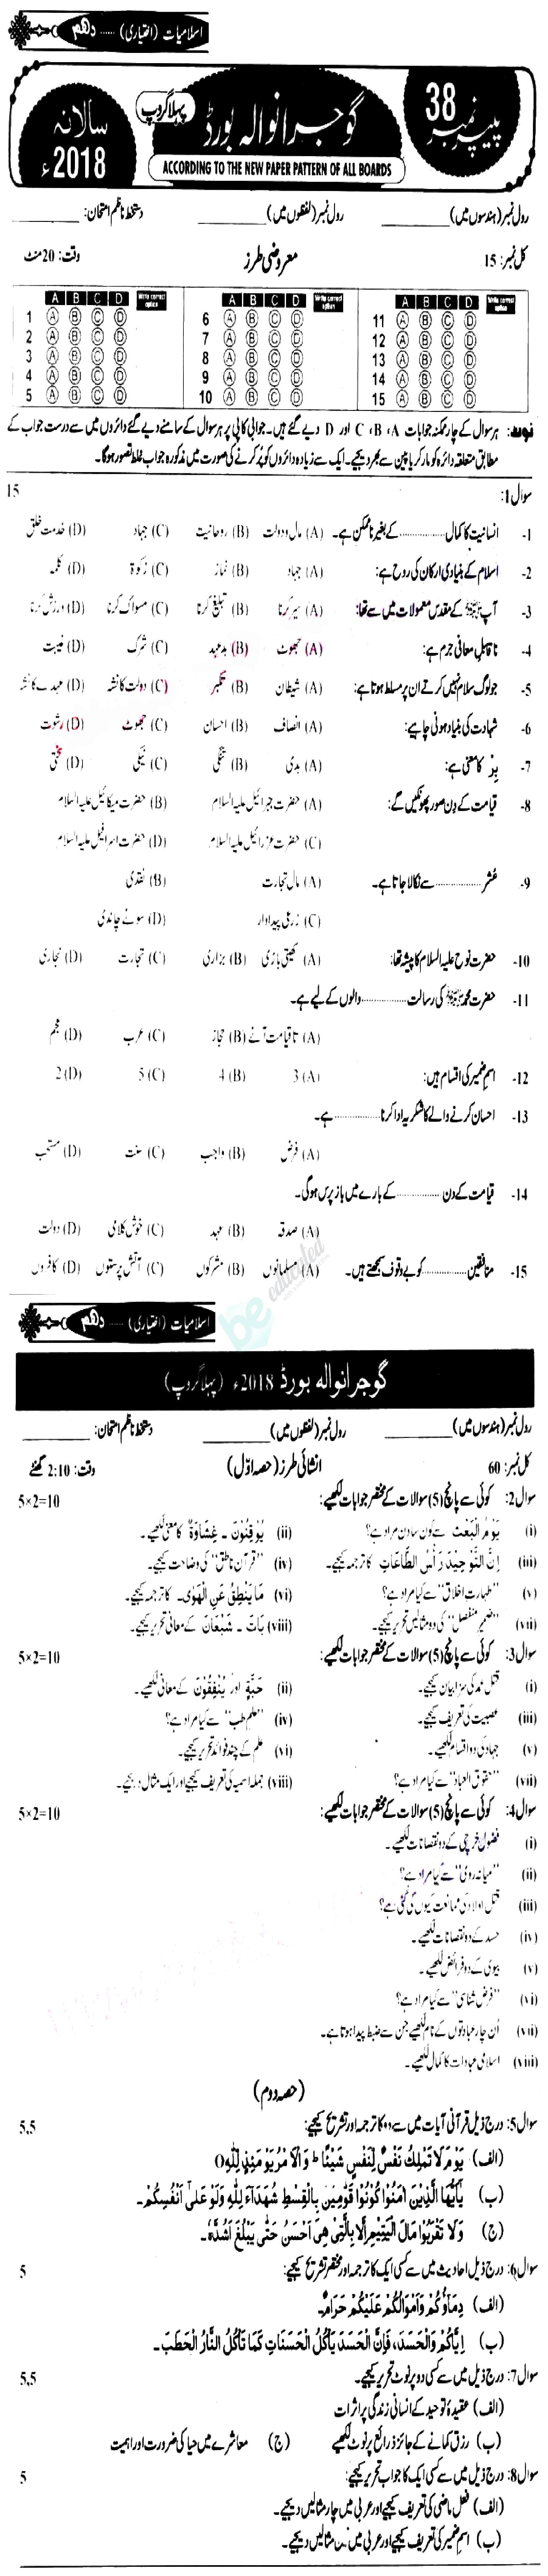 اسلامیات (اختیاری) ...... دہم
پیپر نمبر 38
گوجرانوالہ بورڈ
پہلا گروپ
سالانہ 2018ء
ACCORDING TO THE NEW PAPER PATTERN OF ALL BOARDS
رول نمبر (ہندسوں میں) ________ رول نمبر (لفظوں میں) ________ دستخط ناظم امتحان: ________
کل نمبر: 15 معروضی طرز وقت: 20 منٹ
A B C D Write correct option A B C D Write correct option A B C D Write correct option
1 A B C D 6 A B C D 11 A B C D
2 A B C D 7 A B C D 12 A B C D
3 A B C D 8 A B C D 13 A B C D
4 A B C D 9 A B C D 14 A B C D
5 A B C D 10 A B C D 15 A B C D
نوٹ: ہر سوال کے چار ممکنہ جوابات A، B، C اور D دیے گئے ہیں۔ جوابی کاپی پر ہر سوال کے سامنے دیے گئے دائروں میں سے درست جواب کے
مطابق متعلقہ دائرہ کو مارکر یا پین سے بھر دیجیے۔ ایک سے زیادہ دائروں کو پُر کرنے کی صورت میں مذکورہ جواب غلط تصور ہوگا۔
سوال 1: 15
1- انسانیت کا کمال ............ کے بغیر ناممکن ہے۔ (A) مال و دولت (B) روحانیت (C) جہاد (D) خدمت خلق
2- اسلام کے بنیادی ارکان کی روح ہے: (A) جہاد (B) نماز (C) زکوٰۃ (D) کلمہ
3- آپ ﷺ کے مقدس معمولات میں سے تھا: (A) سیر کرنا (B) تبلیغ کرنا (C) مسواک کرنا (D) ورزش کرنا
4- ناقابلِ معافی جرم ہے: (A) جھوٹ (B) بدعہد (C) شرک (D) غیبت
5- جو لوگ سلام نہیں کرتے ان پر مسلط ہوتا ہے: (A) شیطان (B) تکبر (C) دولت کا نشہ (D) عہدے کا نشہ
6- شہادت کی بنیاد ہونی چاہیے: (A) انصاف (B) احسان (C) جھوٹ (D) رشوت
7- بِرّ کا معنی ہے: (A) بدی (B) تنگی (C) نیکی (D) سختی
8- قیامت کے دن صور پھونکیں گے: (A) حضرت جبرائیل علیہ السلام (B) حضرت میکائیل علیہ السلام
(C) حضرت عزرائیل علیہ السلام (D) حضرت اسرافیل علیہ السلام
9- عُشر ............ سے نکالا جاتا ہے۔ (A) مال تجارت (B) نقدی
(C) زرعی پیداوار (D) سونے چاندی
10- حضرت نوح علیہ السلام کا پیشہ تھا: (A) کھیتی باڑی (B) بزازی (C) تجارت (D) نجاری
11- حضرت محمد ﷺ کی رسالت ............ والوں کے لیے ہے۔
(A) تا قیامت آنے (B) حجاز (C) عرب (D) عجم
12- اسم ضمیر کی اقسام ہیں: (A) 3 (B) 4 (C) 5 (D) 2
13- احسان کرنے والے کا شکریہ ادا کرنا ............ ہے۔
(A) فرض (B) واجب (C) سنت (D) مستحب
14- قیامت کے دن ............ کے بارے میں باز پرس ہوگی۔
(A) صدقہ (B) عہد (C) خوش کلامی (D) دولت
15- منافقین ............ کو بے وقوف سمجھتے ہیں۔ (A) مسلمانوں (B) مشرکوں (C) آتش پرستوں (D) کافروں
be educated
اسلامیات (اختیاری) ...... دہم
گوجرانوالہ بورڈ 2018ء (پہلا گروپ)
رول نمبر (ہندسوں میں) ________ رول نمبر (لفظوں میں) ________ دستخط ناظم امتحان: ________
کل نمبر: 60 انشائی طرز (حصہ اوّل) وقت: 2:10 گھنٹے
سوال 2: کوئی سے پانچ (5) سوالات کے مختصر جوابات لکھیے: 5×2=10
(i) یَوْمُ الْبَعْثِ سے کون سا دن مراد ہے؟ (ii) یُوْقِنُوْنَ ۔ غِشَاوَةٌ کا معنی لکھیے۔
(iii) اِنَّ التَّوْحِیْدَ رَأْسُ الطَّاعَاتِ کا ترجمہ کیجیے۔ (iv) "قرآن ناطق" کی وضاحت کیجیے۔
(v) "طہارت اخلاق" سے کیا مراد ہے؟ (vi) مَا یَنْطِقُ عَنِ الْهَوٰی۔ کا ترجمہ کیجیے۔
(vii) "ضمیر منفصل" کی دو مثالیں تحریر کیجیے۔ (viii) بَاتَ ۔ شَبْعَانَ کے معانی تحریر کیجیے۔
سوال 3: کوئی سے پانچ (5) سوالات کے مختصر جوابات لکھیے: 5×2=10
(i) قتل عمد کی سزا بیان کیجیے۔ (ii) حَبَّةٍ اور یُنْفِقُوْنَ کے معانی لکھیے۔
(iii) عصبیت کی تعریف کیجیے۔ (iv) "علم طب" سے کیا مراد ہے؟
(v) جہاد کی دو اقسام لکھیے۔ (vi) علم کے چند فوائد تحریر کیجیے۔
(vii) "حقوق العباد" سے کیا مراد ہے؟ (viii) جملہ اسمیہ کی تعریف کیجیے اور ایک مثال دیجیے۔
سوال 4: کوئی سے پانچ (5) سوالات کے مختصر جوابات لکھیے: 5×2=10
(i) فضول خرچی کے دو نقصانات لکھیے۔
(ii) "میانہ روی" سے کیا مراد ہے؟
(iii) قتل اولاد کی ممانعت کیوں کی گئی ہے؟
(iv) حسد کے دو نقصانات لکھیے۔
(v) بیوی کے دو فرائض لکھیے۔
(vi) "فرض شناسی" سے کیا مراد ہے؟
(vii) اُن چار عبادتوں کے نام لکھیے جن سے ضبط پیدا ہوتا ہے۔
(viii) اسلامی عبادات کا کمال لکھیے۔
(حصہ دوم)
سوال 5: درج ذیل قرآنی آیات میں سے دو کا ترجمہ اور تشریح کیجیے: 5,5
(الف) یَوْمَ لَا تَمْلِكُ نَفْسٌ لِّنَفْسٍ شَیْئًا ؕ وَ الْاَمْرُ یَوْمَئِذٍ لِّلّٰهِ O
(ب) یٰۤاَیُّهَا الَّذِیْنَ اٰمَنُوْا كُوْنُوْا قَوّٰمِیْنَ بِالْقِسْطِ شُهَدَآءَ لِلّٰهِ وَلَوْ عَلٰۤی اَنْفُسِكُمْ۔
(ج) وَ لَا تَقْرَبُوْا مَالَ الْیَتِیْمِ اِلَّا بِالَّتِیْ هِیَ اَحْسَنُ حَتّٰی یَبْلُغَ اَشُدَّهٗ۔
سوال 6: درج ذیل احادیث میں سے کسی ایک کا ترجمہ اور مختصر تشریح کیجیے: 5
(الف) دِمَاؤُكُمْ وَاَمْوَالُكُمْ عَلَیْكُمْ حَرَامٌ۔
(ب) اِیَّاكُمْ وَالْحَسَدَ، فَاِنَّ الْحَسَدَ یَأْكُلُ الْحَسَنَاتِ كَمَا تَأْكُلُ النَّارُ الْحَطَبَ۔
سوال 7: درج ذیل میں سے کسی دو پر نوٹ تحریر کیجیے۔ 5,5
(الف) عقیدۂ توحید کے انسانی زندگی پر اثرات
(ب) رزق کمانے کے جائز ذرائع پر نوٹ لکھیے (ج) معاشرے میں حیا کی ضرورت اور اہمیت
سوال 8: درج ذیل میں سے کسی ایک کا جواب تحریر کیجیے: 5
(الف) فعل ماضی کی تعریف کیجیے اور عربی میں چار مثالیں دیجیے۔
(ب) اسم ضمیر کی تعریف کیجیے اور عربی میں مثالیں دیجیے۔